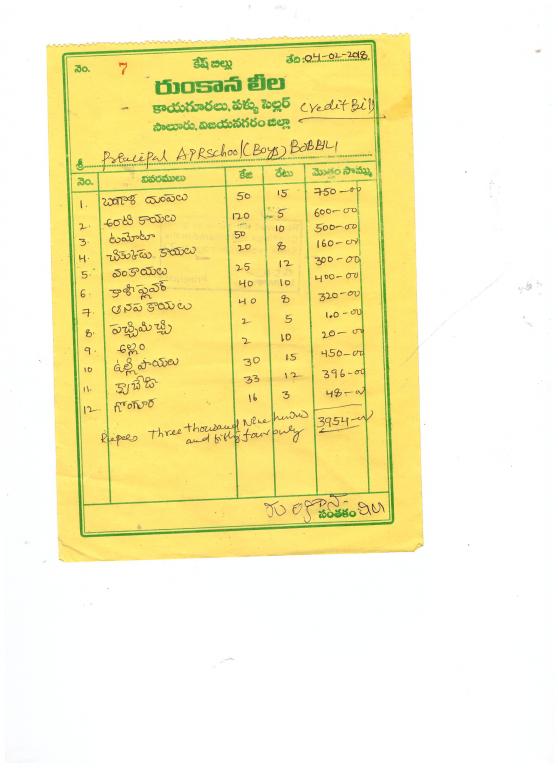 నెం. 7 కేష్ బిల్లు తేది: 04-02-2018
రుంకాన లీల
కాయగూరలు, పళ్ళు సెల్లర్ Credit Bill
సాలూరు, విజయనగరం జిల్లా
శ్రీ Principal APRSchool (Boys) BOBBILI
నెం. వివరములు కేజి రేటు మొత్తం సొమ్ము
1. బంగాళ దుంపలు 50 15 750-00
2. అరటి కాయలు 120 5 600-00
3. టమోటా 50 10 500-00
4. చిక్కుడు కాయలు 20 8 160-00
5. వంకాయలు 25 12 300-00
6. కాలీఫ్లవర్ 40 10 400-00
7. ఆనప కాయలు 40 8 320-00
8. పచ్చిమిర్చి 2 5 10-00
9. అల్లం 2 10 20-00
10 ఉల్లి పాయలు 30 15 450-00
11. క్యాబేజి 33 12 396-00
12. గోంగూర 16 3 48-00
Rupees Three thousand Nine hundred 3954-00
and fifty four only
సంతకం